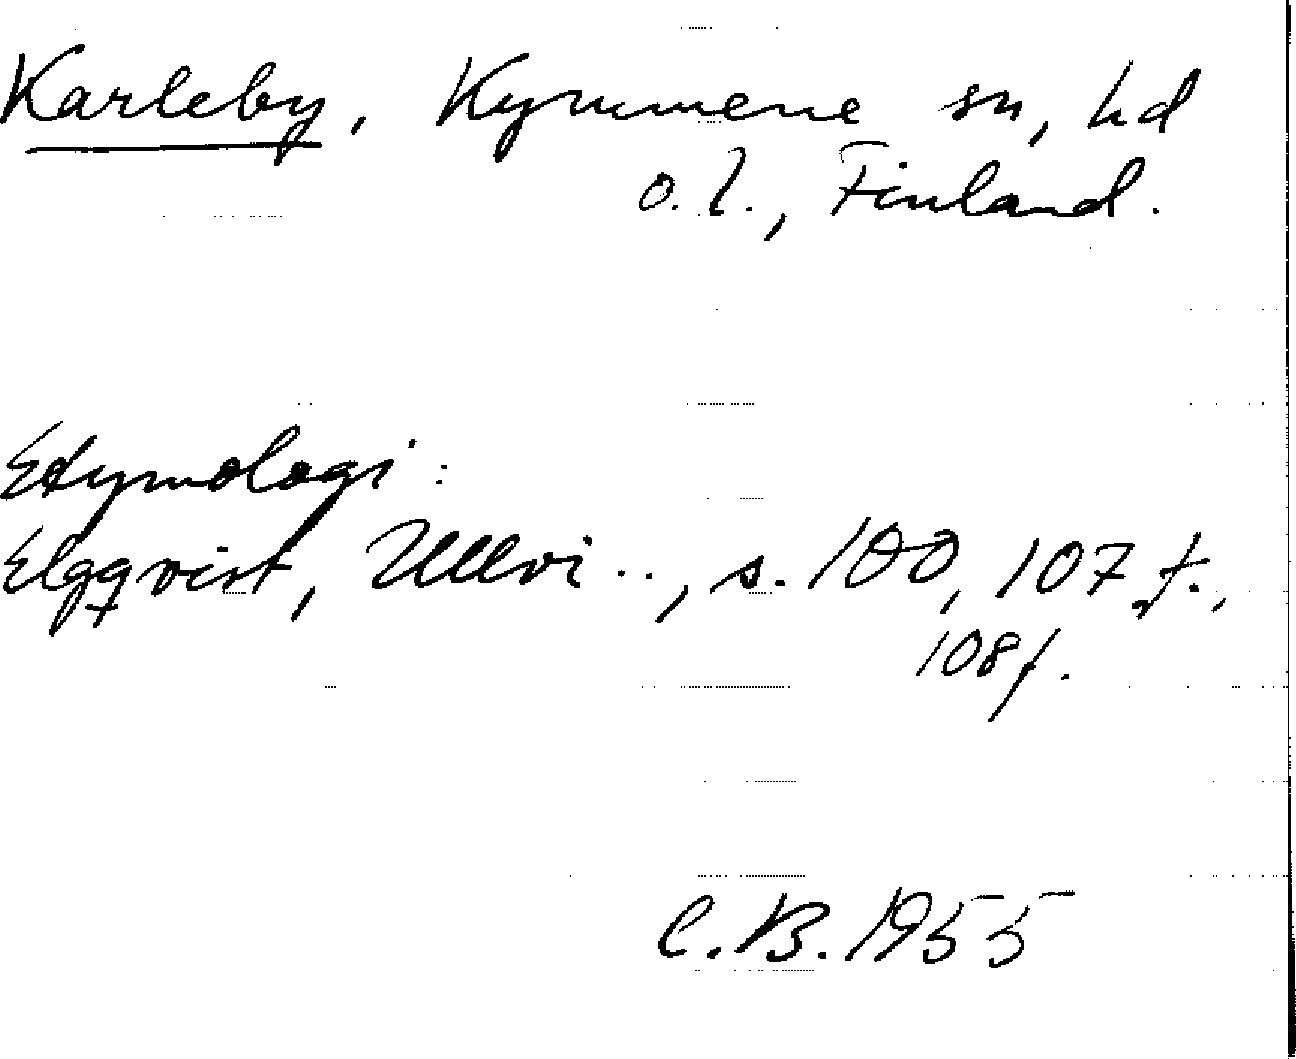 Karleby, Kymmene sn, hd
o. l., Finland.
Etymologi:
Elgqvist, Ullvi.., s. 100, 107 f.,
108 f.
C.B. 1955